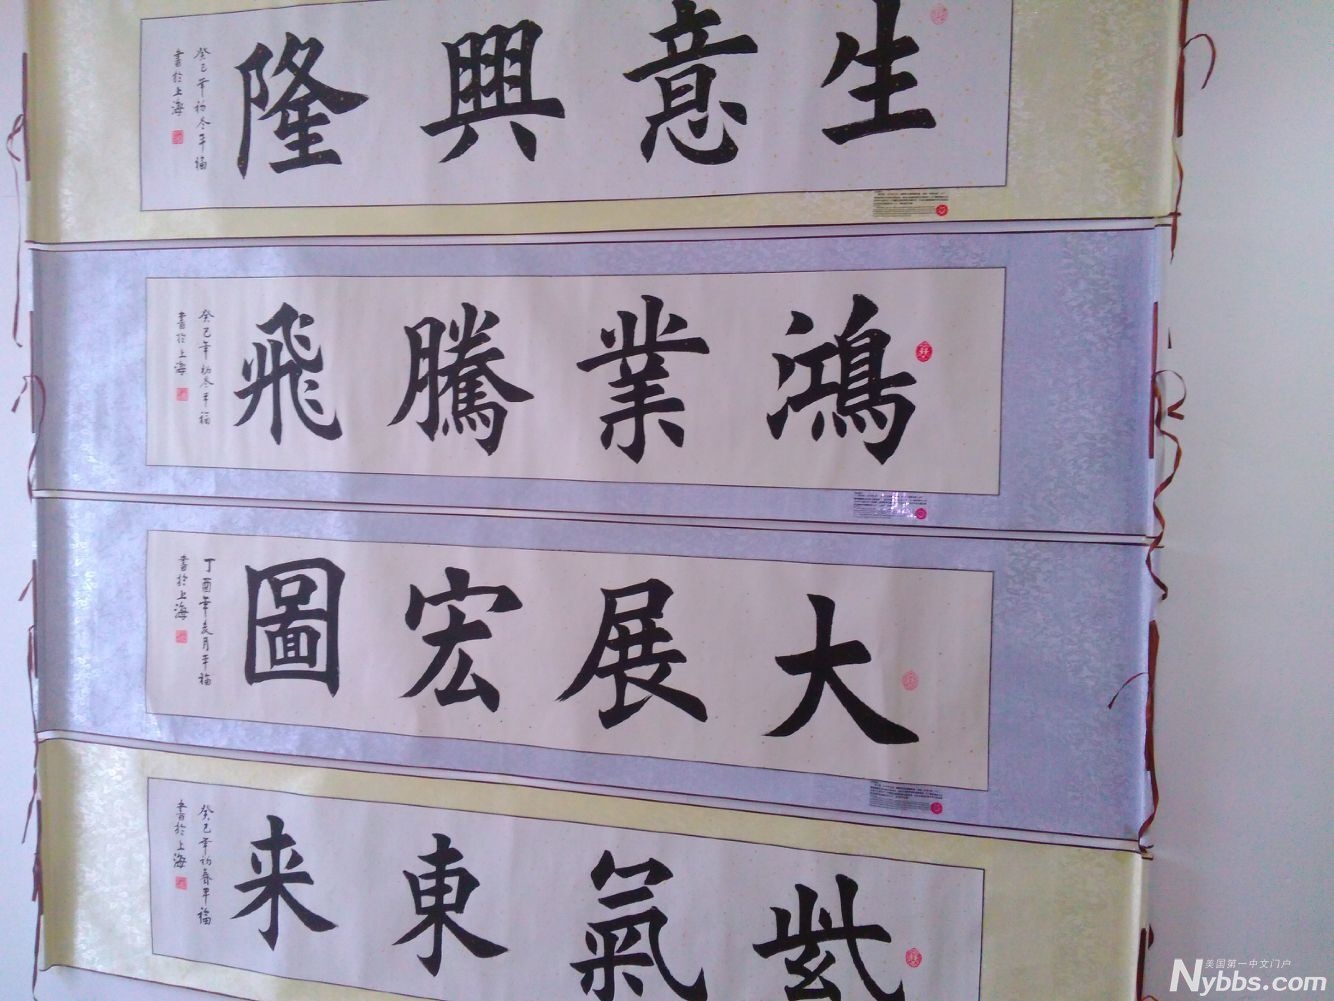 生意興隆
癸巳年初冬平福
書於上海
鴻業騰飛
癸巳年初冬平福
書於上海
大展宏圖
丁酉年亥月平福
書於上海
紫氣東来
癸巳年初春平福
書於上海
美国第一中文门户
Nybbs.com